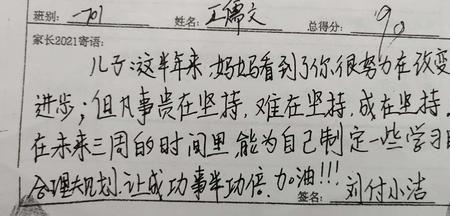 班别: 701 姓名: 王儒文 总得分: 90
家长2021寄语:
儿子:这半年来,妈妈看到了你很努力在改变
进步;但凡事贵在坚持,难在坚持,成在坚持.
在未来三周的时间里,能为自己制定一些学习
合理规划,让成功事半功倍.加油!!!
签名: 刘付小洁